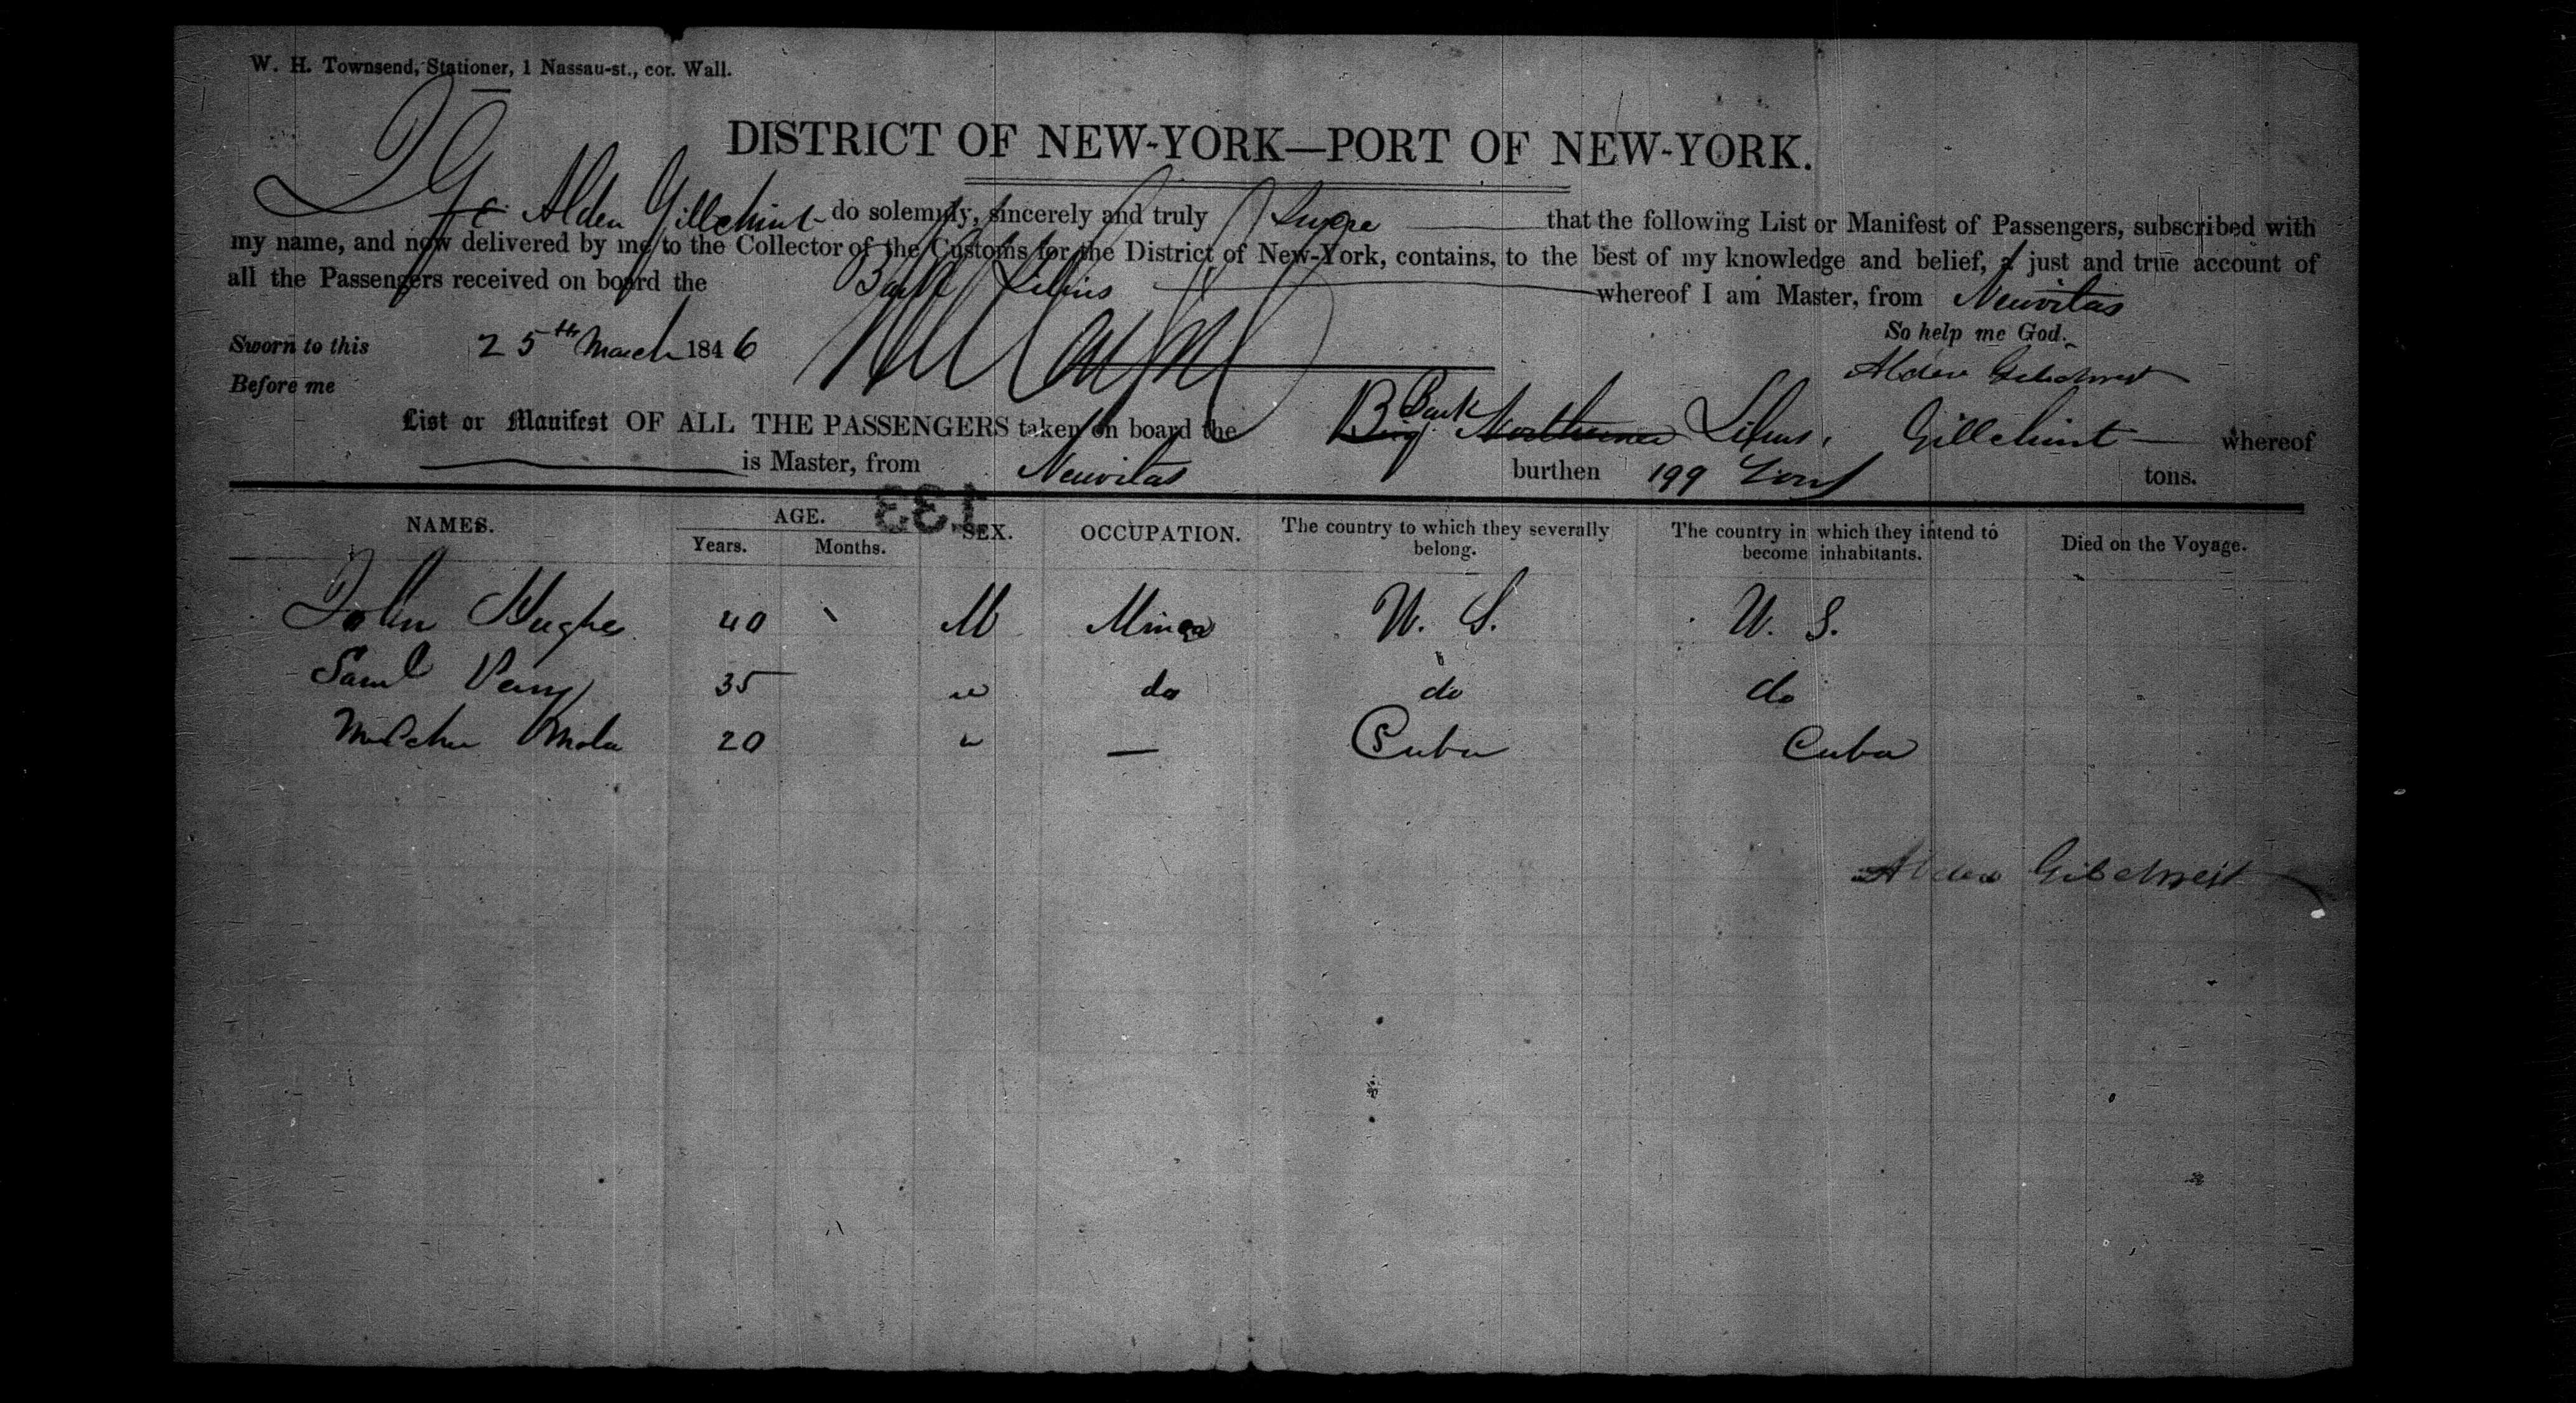 W. H. Townsend, Stationer, 1 Nassau-st., cor. Wall.
DISTRICT OF NEW-YORK—PORT OF NEW-YORK.
I Alden Gillchrist do solemnly, sincerely and truly that the following List or Manifest of Passengers, subscribed with
my name, and now delivered by me to the Collector of the Customs for the District of New-York, contains, to the best of my knowledge and belief, a just and true account of
all the Passengers received on board the Bark whereof I am Master, from Neuvitas
Sworn to this 25th March 1846 So help me God.
Before me Alden Gilchrest
List or Manifest OF ALL THE PASSENGERS taken on board the Brig Bark Northerner Gillchrist whereof
is Master, from Neuvitas burthen 199 Tons tons.
133
NAMES. AGE. SEX. OCCUPATION. The country to which they severally belong. The country in which they intend to become inhabitants. Died on the Voyage.
Years. Months.
John Hughes 40 M Miner U. S. U. S.
Saml Perry 35 " do do do
20 " — Cuba Cuba
Alden Gilchrest